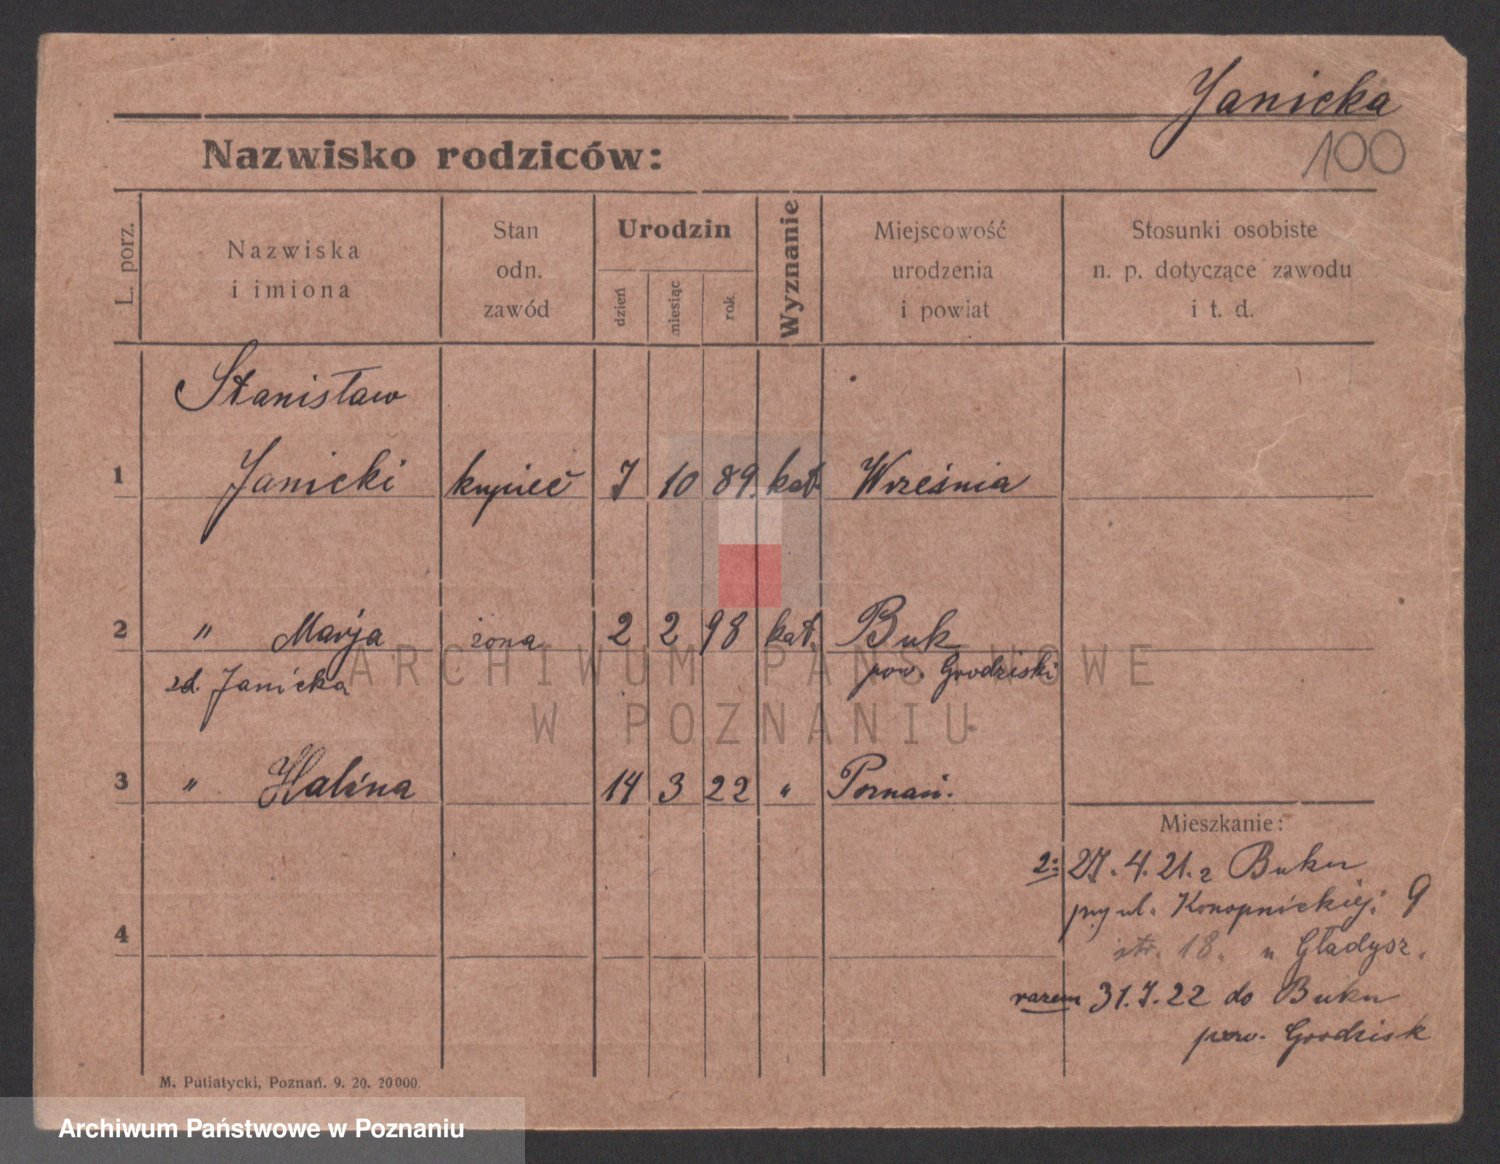 Janicka
100
Nazwisko rodziców:
L. porz.
Nazwiska
i imiona
Stan
odn.
zawód
Urodzin
dzień
miesiąc
rok
Wyznanie
Miejscowość
urodzenia
i powiat
Stosunki osobiste
n. p. dotyczące zawodu
i t. d.
Stanisław
1 Janicki kupiec 7 10 89. kat. Września
2 " Marja żona 2 2 98 kat. Buk
zd. Janicka pow. Grodziski
3 " Halina 14 3 22 " Poznań.
Mieszkanie:
2: 27. 4. 21. z Buku
przy ul. Konopnickiej 9
str. 18. u Gładysz.
4
razem 31. 7. 22 do Buku
pow. Grodzisk
M. Putiatycki, Poznań. 9. 20. 20000.
ARCHIWUM PAŃSTWOWE
W POZNANIU
Archiwum Państwowe w Poznaniu